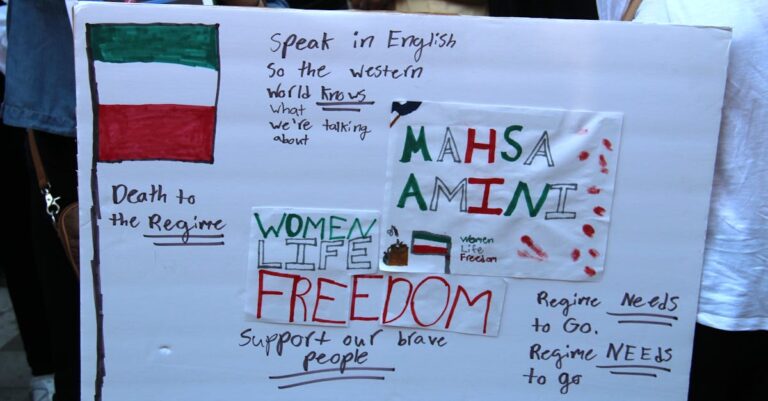 Speak in English
So the western
World Knows
What
we're talking
about
Death to
the Regime
MAHSA
AMINI
Women
Life
Freedom
WOMEN
LIFE
FREEDOM
Support our brave
people
Regime Needs
to Go.
Regime NEEDS
to go